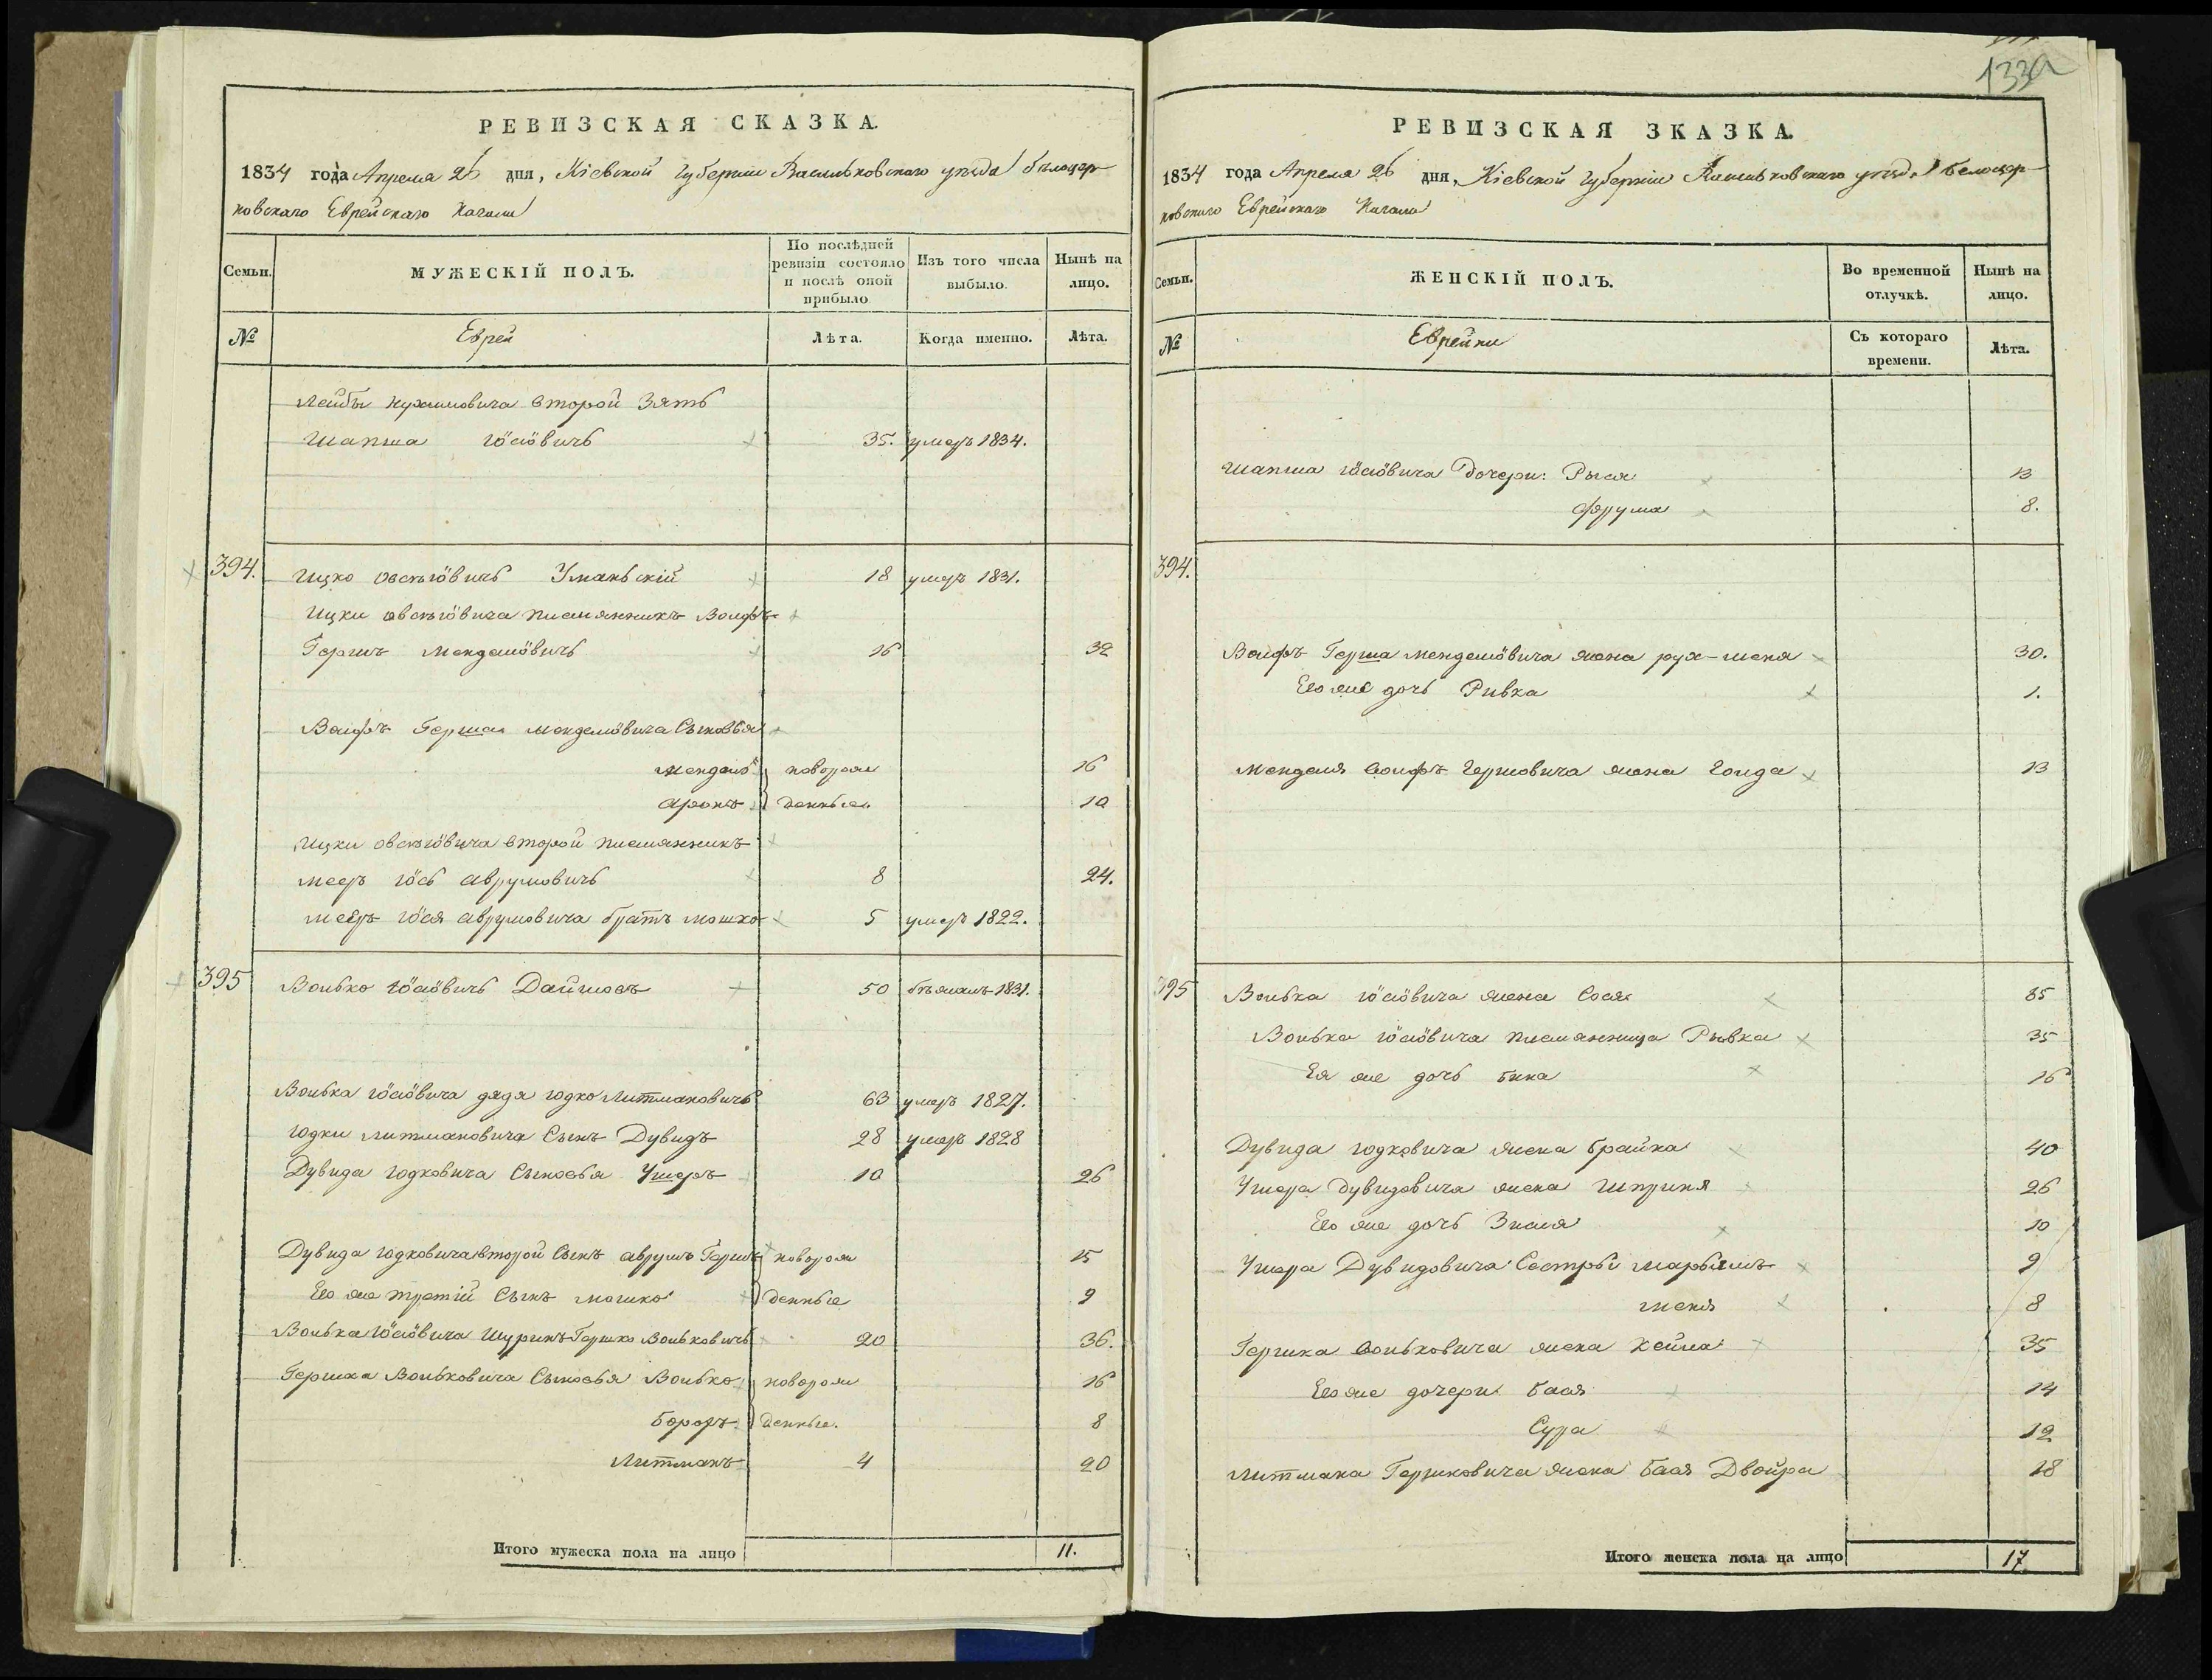 РЕВИЗСКАЯ СКАЗКА.
1834 года Апреля 26 дня, Кіевской Губерніи Васильковскаго уѣзда бѣлоцер-
ковскаго Еврейскаго Кагала
Семьи.
МУЖЕСКІЙ ПОЛЪ.
По послѣдней ревизіи состояло и послѣ оной прибыло
Изъ того числа выбыло.
Нынѣ на лицо.
№
Еврей
Лѣта.
Когда именно.
Лѣта.
Лейбы Нухимовича второй Зять
Шапша Іосіовичъ 35. умеръ 1834.
394. Ицко Овсѣіовичь Уманьскій 18 умеръ 1831.
Ицки овсѣіовича племянникъ Волфъ
Гершъ Менделіовичь 16 32
Волфъ Герша Менделіовича Сыновья
Мендель новорож 16
Аронъ денные 10
Ицки овсѣіовича второй племянникъ
Мееръ Іось Аврумовичь 8 24.
Мееръ Іося Аврумовича братъ Мошко 5 умеръ 1822.
395 Волько Іосіовичь Даймовъ 50 бѣжалъ 1831.
Волька Іосіовича дядя Юдко Литмановичь 63 умеръ 1827.
Юдки Литмановича Сынъ Дувидъ 28 умеръ 1828
Дувида Юдковича Сыновья Ушеръ 10 26
Дувида Юдковича второй Сынъ Аврумъ Гершъ новорож 15
Его же третій Сынъ Мошко денные 9
Волька Іосіовича Шуринъ Гершко Вольковичь 20 36.
Гершка Вольковича Сыновья Волько новорож 16
Борохъ денные. 8
Литманъ 4 20
Итого мужеска пола на лицо 11.
133а
РЕВИЗСКАЯ ЗКАЗКА.
1834 года Апреля 26 дня, Кіевской Губерніи Васильковскаго уѣзда Белоцер-
ковскаго Еврейскаго Кагала
Семьи.
ЖЕНСКІЙ ПОЛЪ.
Во временной отлучкѣ.
Нынѣ на лицо.
№
Еврейки
Съ котораго времени.
Лѣта.
Шапша Іосіовича Дочери: Рыся 13
Фрума 8.
394.
Волфъ Герша Менделіовича жена рух-леня 30.
Его же дочь Ривка 1.
Менделя Волфъ Гершовича жена Голда 13
395 Волька Іосіовича жена Сося 85
Волька Іосіовича племянница Рывка 35
Ея же дочь Бина 16
Дувида Юдковича жена Брайна 40
Ушера Дувидовича жена Шприня 26
Его же дочь Зисля 10
Ушера Дувидовича Сестры Марьямъ 9
Меня 8
Гершка Вольковича жена Хейна 35
Его же дочери Бася 14
Сура 12
Литмана Гершковича жена Бася Двойра 18
Итого женска пола на лицо 17.